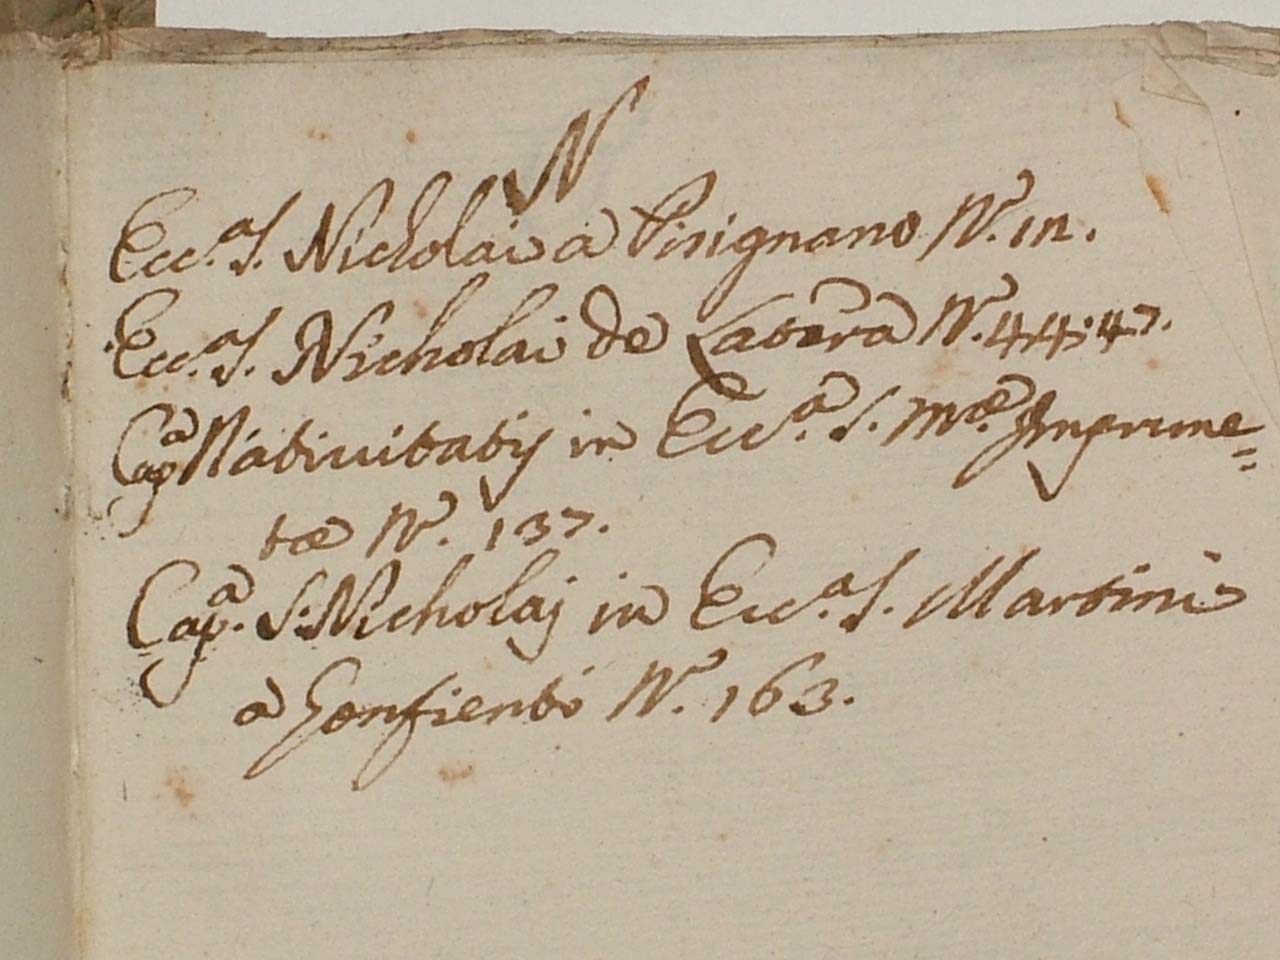 N
Ecc.a S. Nicholai a Pisignano N.o 12.
Ecc.a S. Nicholai de Latera N.o 44. 47.
Cap.a Nativitatis in Ecc.a S. M.æ Imprune=
tæ N.o 137.
Cap.a S. Nicholaj in Ecc.a S. Martini
a Gonfienti N.o 163.